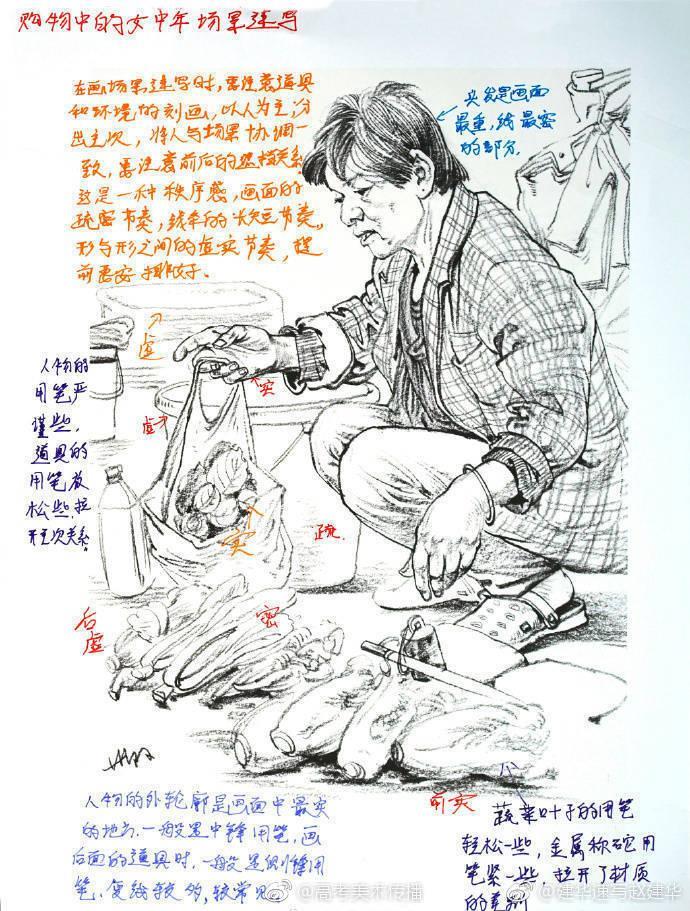 购物中的女中年场景速写
在画场景速写时,需注意道具
和环境的刻画,以人为主,分
出主次,将人与场景协调一
致,需注意前后的遮挡关系
这是一种秩序感,画面的
疏密节奏,线条的长短节奏,
形与形之间的虚实节奏,提
前要安排好.
头发是画面
最重,线最密
的部分.
虚
实
虚
人物的
用笔严
谨些,
道具的
用笔放
松些拉
开主次关系
实
疏
后
虚
密
前实
人物的外轮廓是画面中最实
的地方.一般是中锋用笔,画
后面的道具时,一般是侧锋用
笔,复线较多,较常见.
蔬菜叶子的用笔
轻松一些,金属称砣用
笔紧一些,拉开了材质
的差别
@高考美术传播
@建华速写赵建华